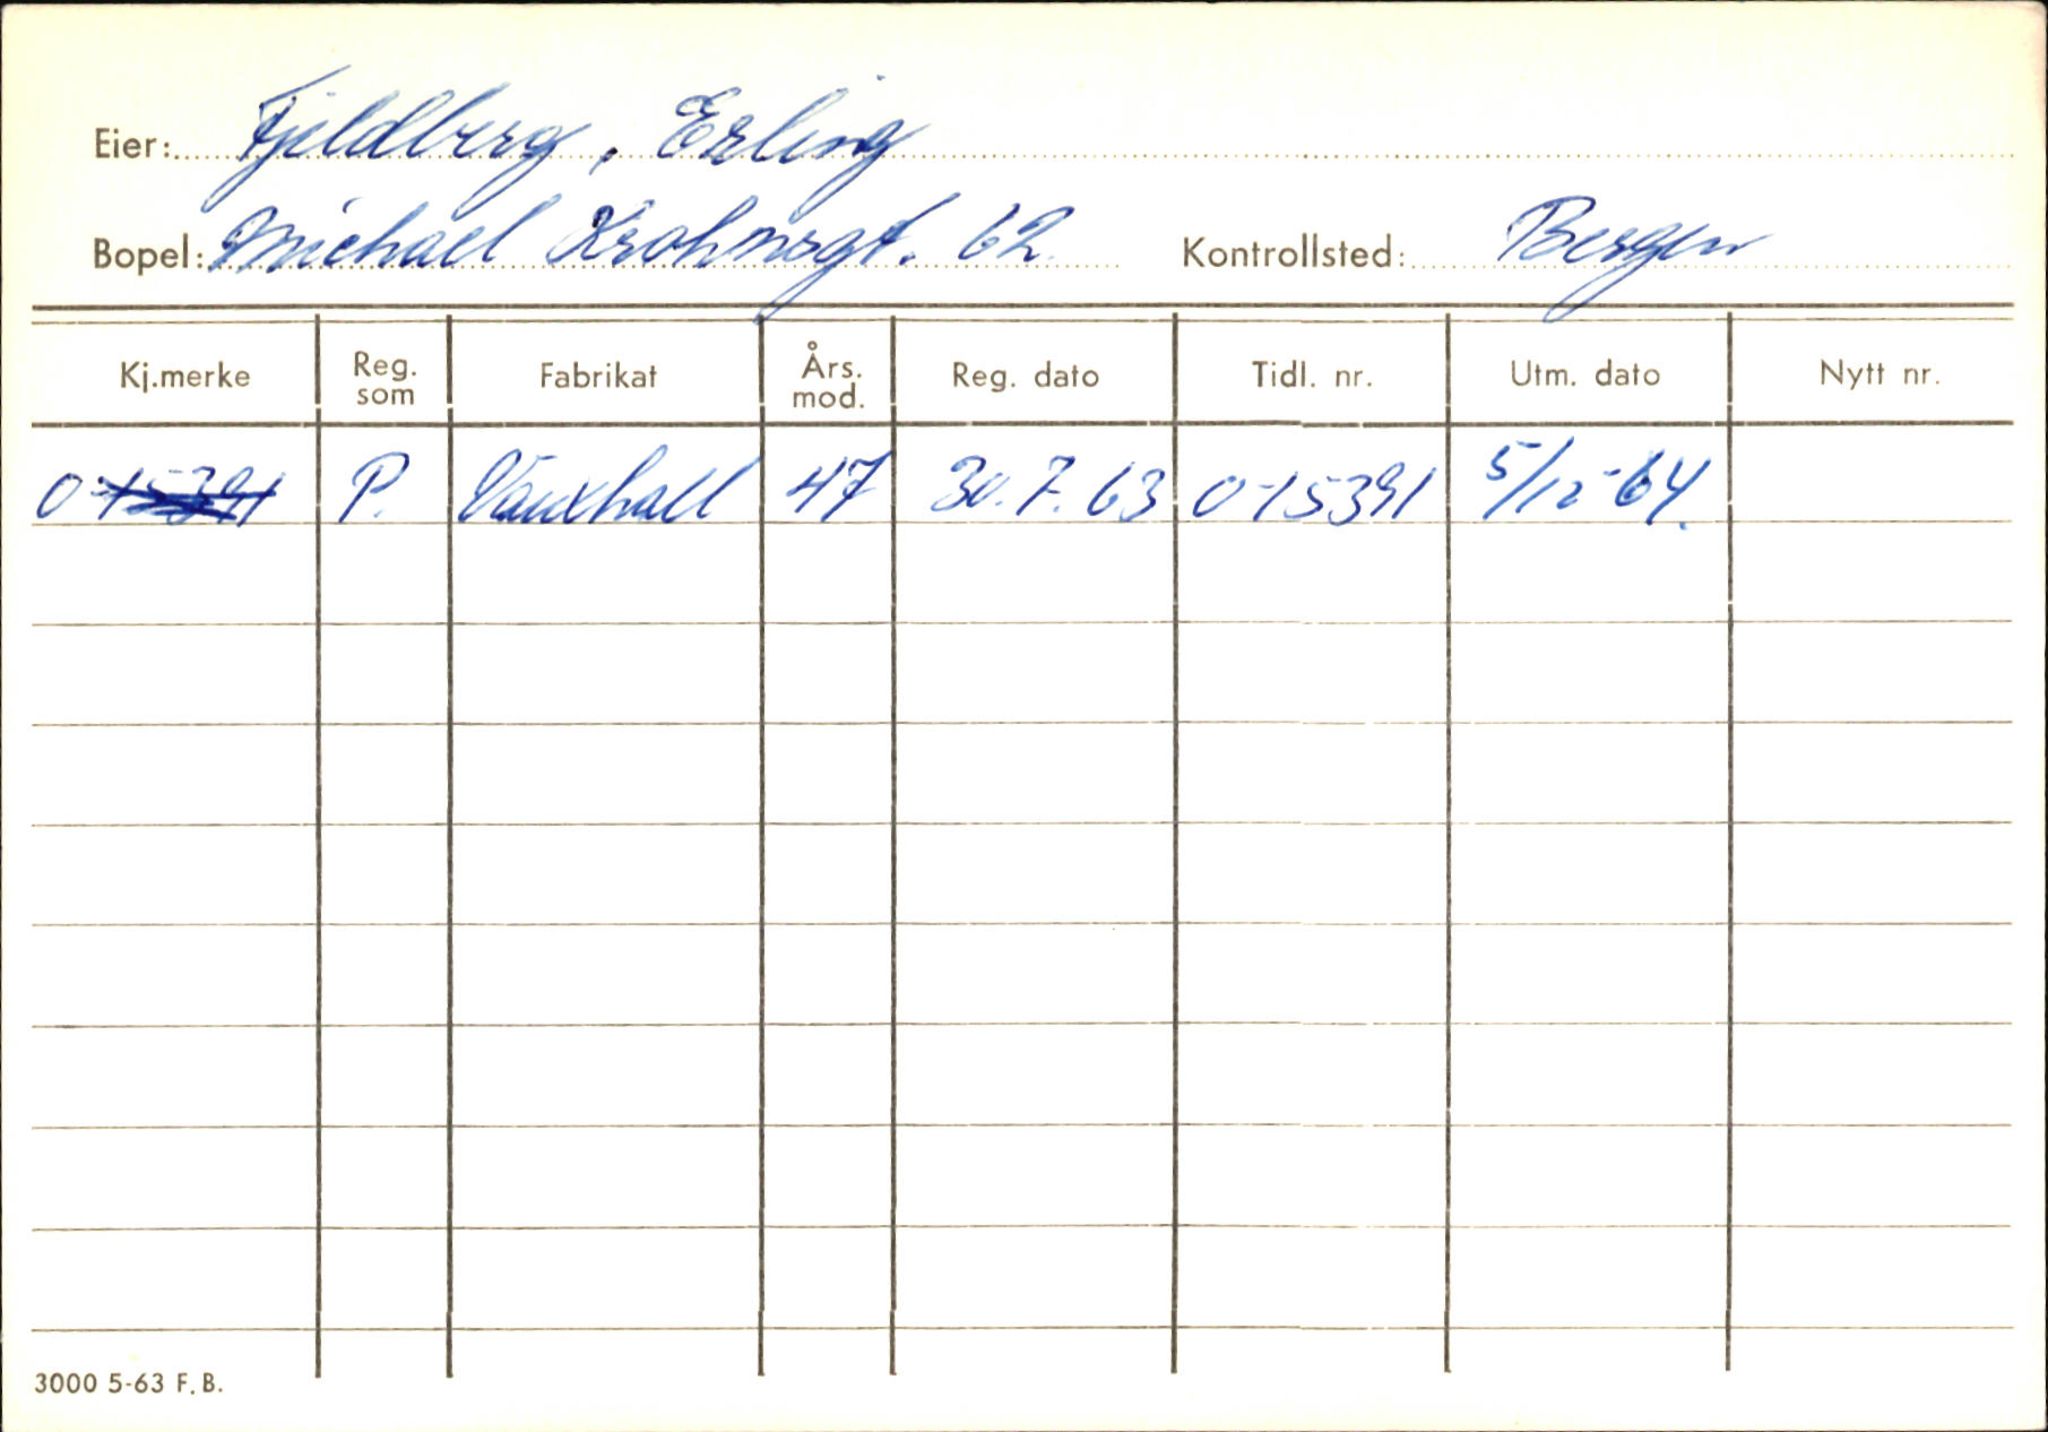 Eier: Fjeldberg, Erling
Bopel: Michael Krohnsgt. 62. Kontrollsted: Bergen
Kj.merke Reg. som Fabrikat Års. mod. Reg. dato Tidl. nr. Utm. dato Nytt nr.
O-15391 P. Vauxhall 47 30.7.63 O-15391 5/12-64.
3000 5-63 F.B.